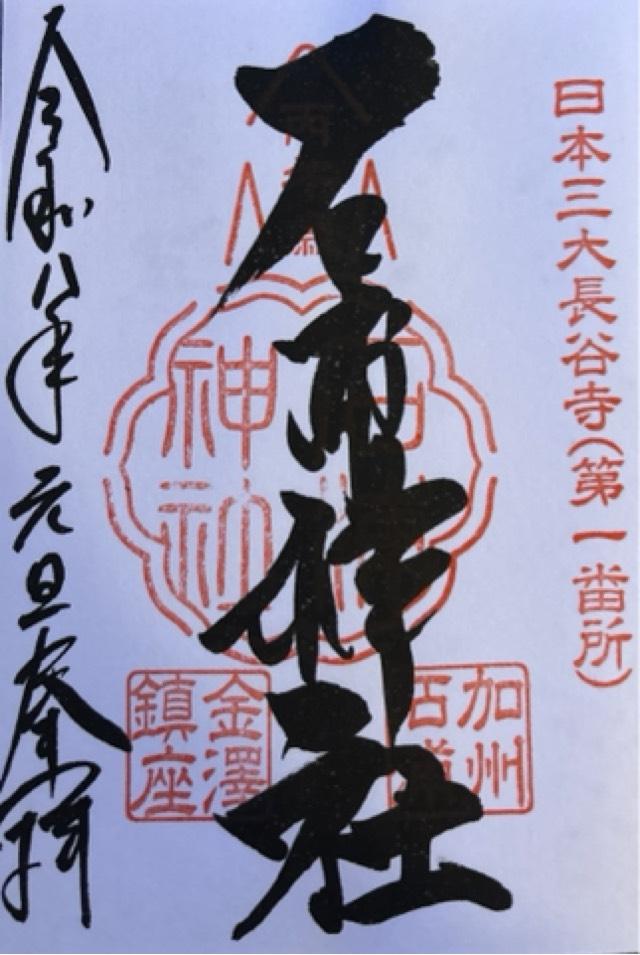 日本三大長谷寺(第一番所)
石浦神社
石浦
神社
加州
石浦
金澤
鎮座
令和八年 元旦 奉拝